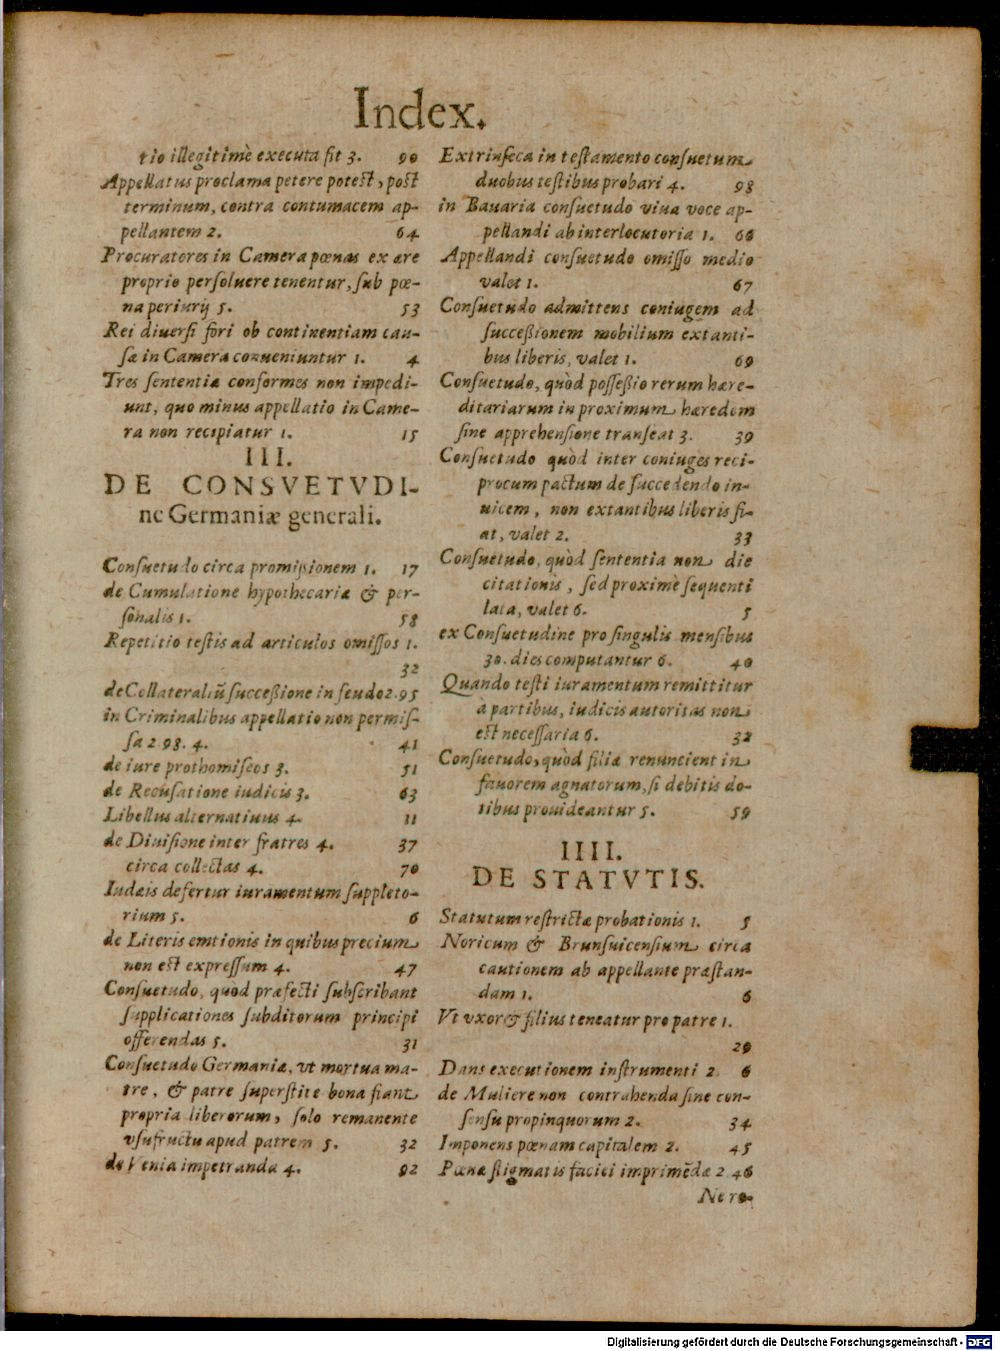 Index.
tio illegitimè executa sit 3. 90
Appellatus proclama petere potest, post
terminum, contra contumacem ap-
pellantem 2. 64
Procuratores in Camera pœnas ex ære
proprio persoluere tenentur, sub pœ-
na periurij 5. 53
Rei diuersi fori ob continentiam cau-
sæ in Camera conueniuntur 1. 4
Tres sententiæ conformes non impedi-
unt, quo minus appellatio in Came-
ra non recipiatur 1. 15
III.
DE CONSVETVDI-
ne Germaniæ generali.
Consuetudo circa promißionem 1. 17
de Cumulatione hypothecariæ & per-
sonalis 1. 58
Repetitio testis ad articulos omissos 1.
32
de Collateraliũ succeßione in feudo 2.95
in Criminalibus appellatio non permis-
sa 2 98. 4. 41
de iure prothomiseos 3. 51
de Recusatione iudicis 3. 63
Libellus alternatiuus 4. 11
de Diuisione inter fratres 4. 37
circa collectas 4. 70
Iudæis defertur iuramentum suppleto-
rium 5. 6
de Literis emtionis in quibus precium
non est expressum 4. 47
Consuetudo, quod præfecti subscribant
supplicationes subditorum principi
offerendas 5. 31
Consuetudo Germaniæ, vt mortua ma-
tre, & patre superstite bona fiant
propria liberorum, solo remanente
vsufructu apud patrem 5. 32
de Venia impetranda 4. 92
Extrinseca in testamento consuetum
duobus testibus probari 4. 98
in Bauaria consuetudo viua voce ap-
pellandi ab interlocutoria 1. 66
Appellandi consuetudo omisso medio
valet 1. 67
Consuetudo admittens coniugem ad
succeßionem mobilium extanti-
bus liberis, valet 1. 69
Consuetudo, quòd possessio rerum hære-
ditariarum in proximum hæredem
sine apprehensione transeat 3. 39
Consuetudo quòd inter coniuges reci-
procum pactum de succedendo in-
uicem, non extantibus liberis fi-
at, valet 2. 33
Consuetudo, quòd sententia non die
citationis, sed proximè sequenti
lata, valet 6. 5
ex Consuetudine pro singulis mensibus
30. dies computantur 6. 40
Quando testi iuramentum remittitur
à partibus, iudicis autoritas non
est necessaria 6. 32
Consuetudo, quòd filiæ renuncient in
fauorem agnatorum, si debitis do-
tibus prouideantur 5. 59
IIII.
DE STATVTIS.
Statutum restrictæ probationis 1. 5
Noricum & Brunsuicensium circa
cautionem ab appellante præstan-
dam 1. 6
Vt vxor & filius teneatur pro patre 1.
29
Dans executionem instrumenti 2. 6
de Muliere non contrahenda sine con-
sensu propinquorum 2. 34
Imponens pœnam capitalem 2. 45
Pœnæ stigmatis faciei imprimẽdæ 2 46
Digitalisierung gefördert durch die Deutsche Forschungsgemeinschaft - DFG